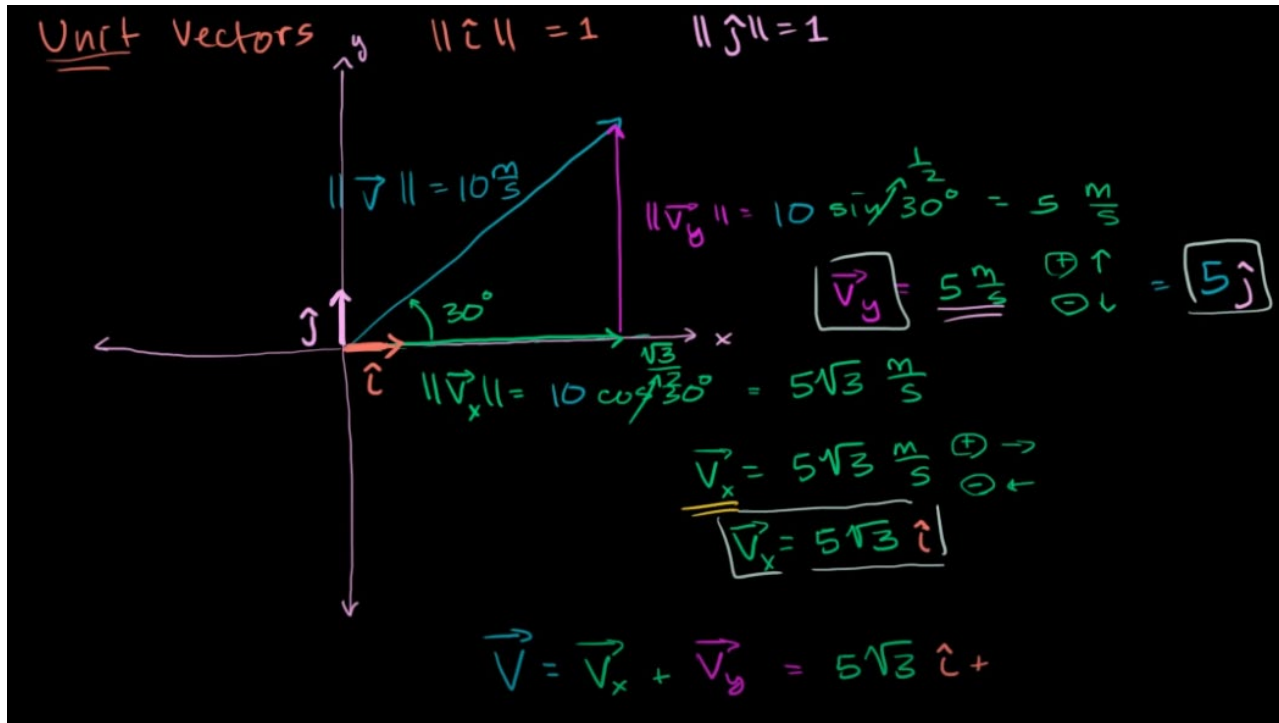 Unit Vectors ||î|| = 1 ||ĵ|| = 1
y
||V⃗|| = 10 m/s
1/2
||V⃗_y|| = 10 sin 30° = 5 m/s
V⃗_y = 5 m/s ⊕ ↑ ⊖ ↓ = 5 ĵ
ĵ 30°
x
î
√3/2
||V⃗_x|| = 10 cos 30° = 5√3 m/s
V⃗_x = 5√3 m/s ⊕ → ⊖ ←
V⃗_x = 5√3 î
V⃗ = V⃗_x + V⃗_y = 5√3 î +